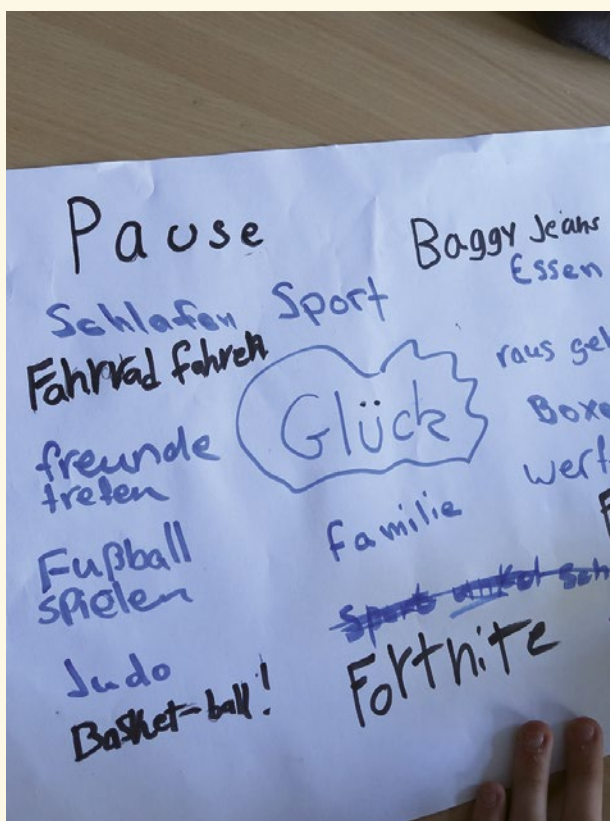 Pause
Baggy Jeans
Essen
Schlafen
Sport
Fahrrad fahren
raus geh
Glück
Boxe
freunde
treten
wert
familie
Fußball
spielen
Sport
Sch
Fortnite
Judo
Basket-ball!